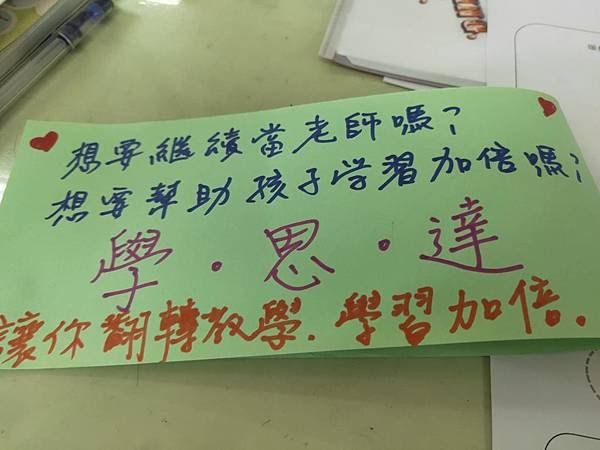 想要繼續當老師嗎?
想要幫助孩子学習加倍嗎?
學·思·達
讓你翻轉教學.學習加倍.